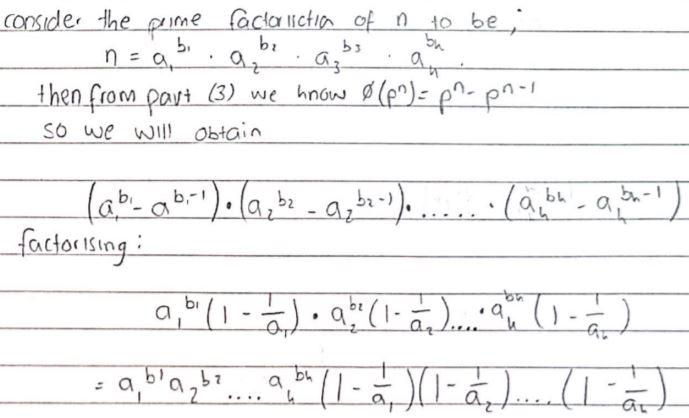 consider the prime factorisction of n to be;
n = a₁^b₁ · a₂^b₂ · a₃^b₃ · aₖ^bₖ.
then from part (3) we know Ø(pⁿ) = pⁿ - pⁿ⁻¹
so we will obtain
(a₁^b₁ - a^b₁-1) · (a₂^b₂ - a₂^b₂-1) · ...... · (aₖ^bₖ - aₖ^bₖ-1)
factorising:
a₁^b₁ (1 - 1/a₁) · a₂^b₂ (1 - 1/a₂) .... · aₖ^bₖ (1 - 1/aₖ)
= a₁^b₁ a₂^b₂ .... aₖ^bₖ (1 - 1/a₁)(1 - 1/a₂) .... (1 - 1/aₖ)